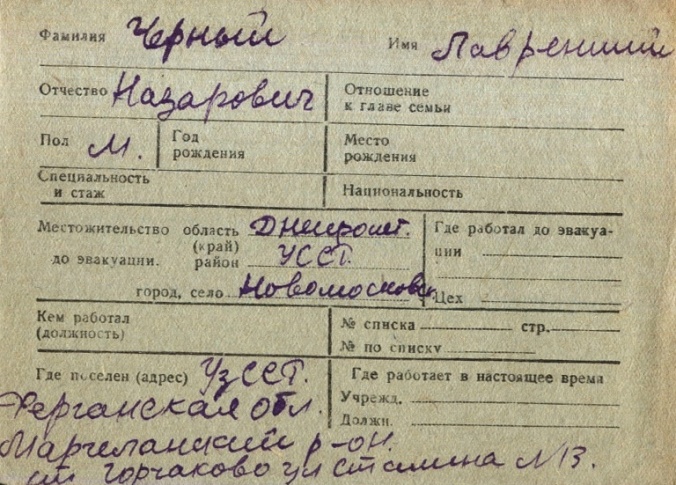 Фамилия Черный Имя Лаврентий
Отчество Назарович Отношение к главе семьи
Пол М. Год рождения Место рождения
Специальность и стаж Национальность
Местожительство область Днепропет. Где работал до эвакуа-
(край)
до эвакуации. район УССР. ции
город, село Новомосковск Цех
Кем работал (должность) № списка стр.
№ по списку
Где поселен (адрес) УзССР. Где работает в настоящее время
Ферганская обл. Учрежд.
Маргеланский р-он. Должн.
ст. Горчаково ул Сталина N 13.